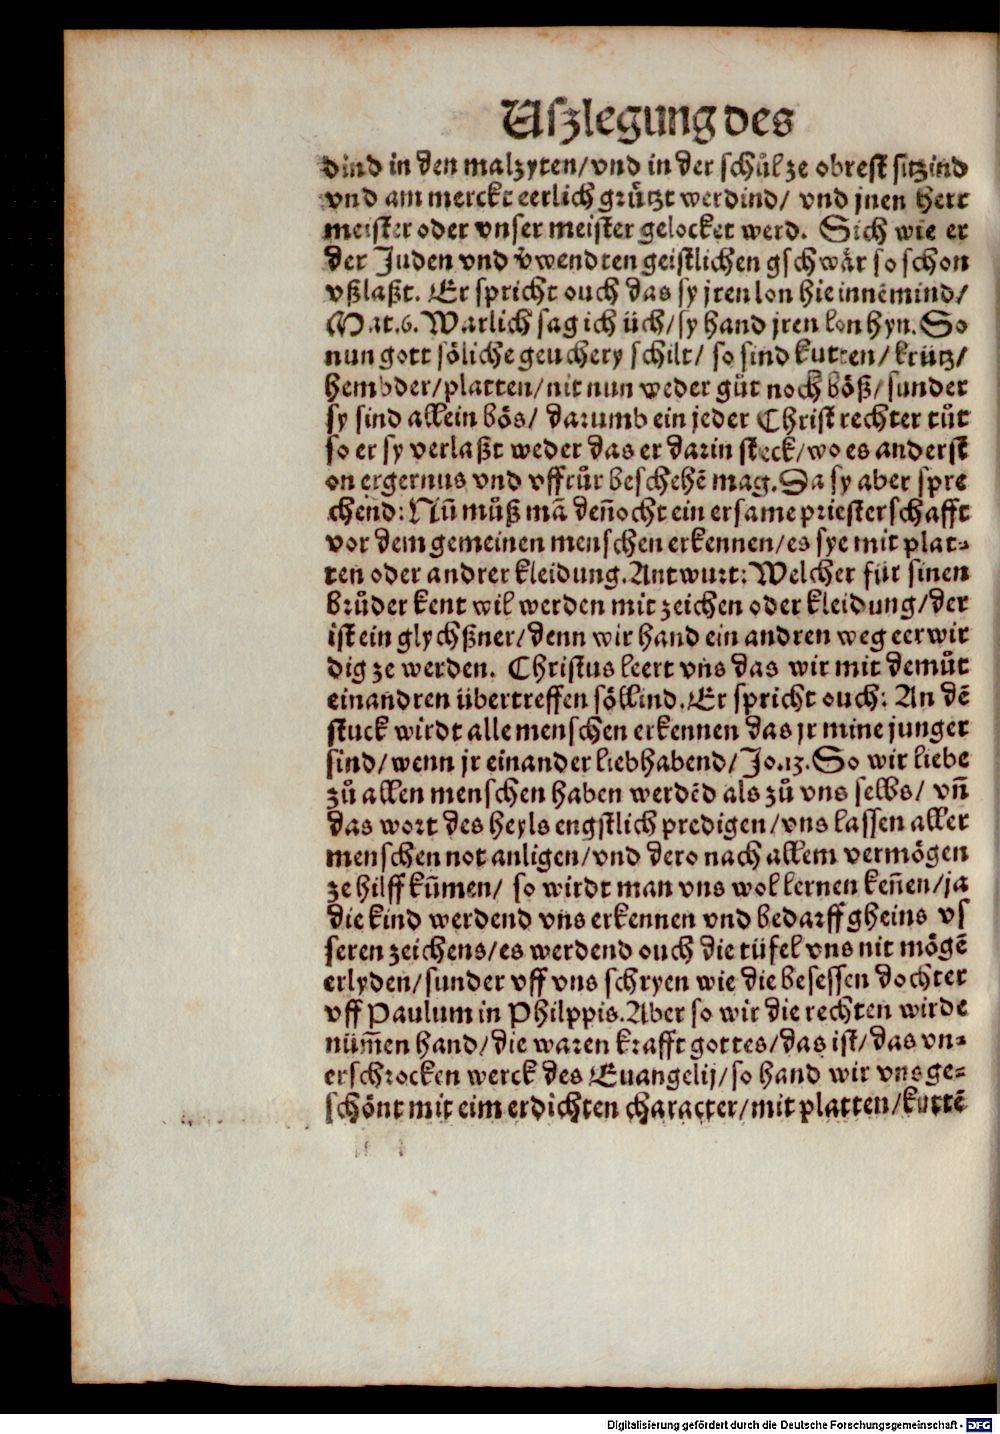 Uſzlegung des
dind in den malzyten/vnd in der ſchůl ze obreſt ſitzind
vnd am merckt eerlich grůtzt werdind/ vnd jnen herr
meiſter oder vnſer meiſter gelocket werd. Sich wie er
der Juden vnd v̓wendten geiſtlichen gſchwår ſo ſchon
vßlaßt. Er ſpricht ouch das ſy jren lon hie innēmind/
Mat.6. Warlich ſag ich üch/ſy hand jren lon hyn. So
nun gott ſőliche geuchery ſchilt/ ſo ſind kutten/krütz/
hembder/platten/nit nun weder gůt noch böß/ſunder
ſy ſind allein bős/ darumb ein jeder Chriſt rechter tůt
ſo er ſy verlaßt weder das er darin ſteck/wo es anderſt
on ergernus vnd vffrůr beſchehē mag. Da ſy aber ſpre
chend: Nū můß mā deñocht ein erſame prieſterſchafft
vor dem gemeinen menſchen erkennen/es ſye mit plat-
ten oder andrer kleidung. Antwurt: Welcher für ſinen
brůder kent wil werden mit zeichen oder kleidung/der
iſt ein glychßner/denn wir hand ein andren weg eerwir
dig ze werden. Chriſtus leert vns das wir mit demůt
einandren übertreffen söllind. Er ſpricht ouch: An dē
ſtuck wirdt alle menſchen erkennen das jr mine junger
ſind/wenn jr einander liebhabend/Jo.13. So wir liebe
zů allen menſchen haben werdēd als zů vns ſelbs/ vñ
das wort des heyls engſtlich predigen/vns laſſen aller
menſchen not anligen/vnd dero nach allem vermögen
ze hilff kūmen/ ſo wirdt man vns wol lernen keñen/ja
die kind werdend vns erkennen vnd bedarff gheins vſ
ſeren zeichens/es werdend ouch die tüfel vns nit mögē
erlyden/ſunder vff vns ſchryen wie die beſeſſen dochter
vff Paulum in Philppis. Aber ſo wir die rechten wirde
nüm̄en hand/die waren krafft gottes/das iſt/das vn-
erſchrocken werck des Euangelij/ſo hand wir vns ge-
ſchönt mit eim erdichten character/mit platten/kuttē
Digitalisierung gefördert durch die Deutsche Forschungsgemeinschaft - DFG